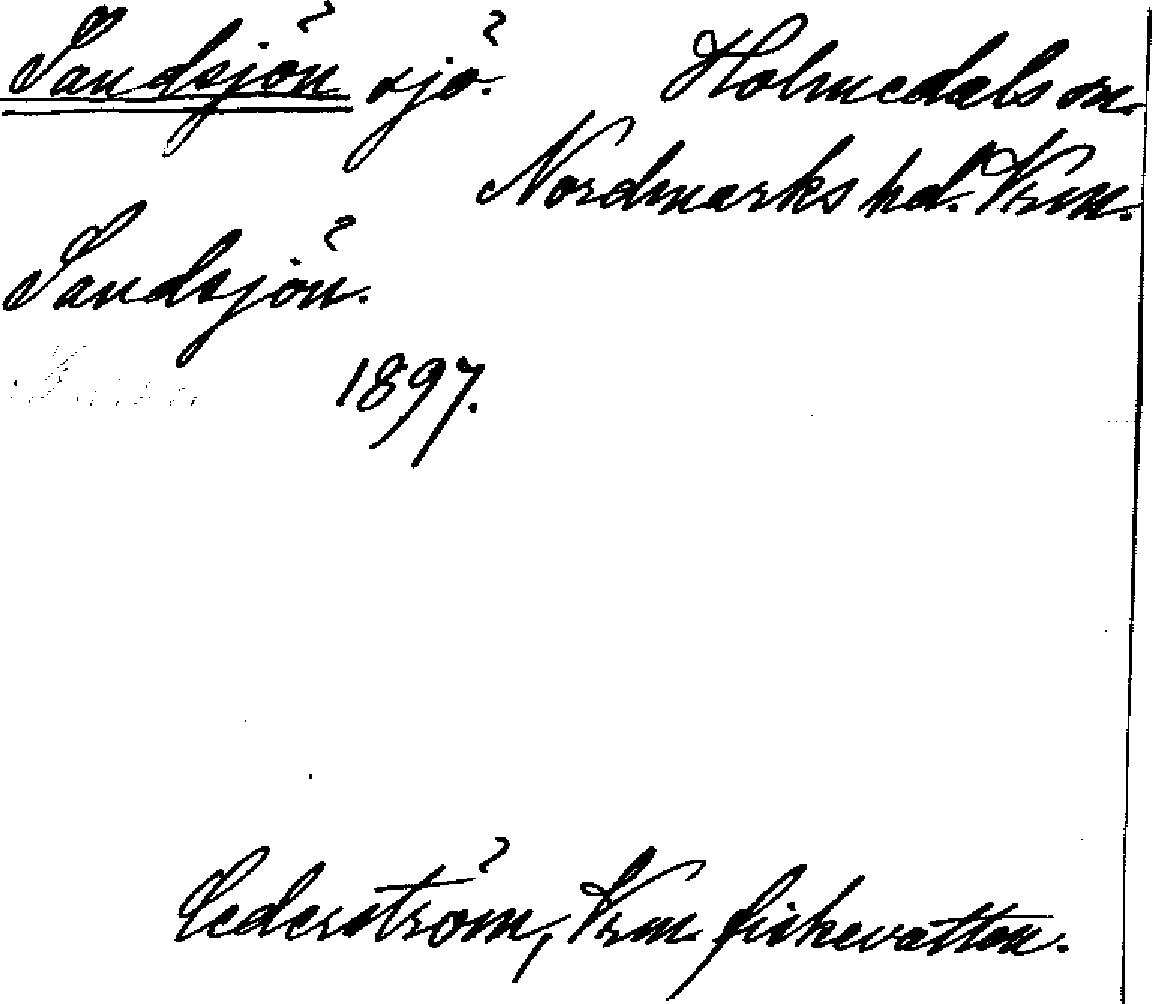 Sandsjön sjö. Holmedals sn.
Nordmarks hd. Vrm.
Sandsjön.
1897.
Cederström, Vrm fiskevatten.